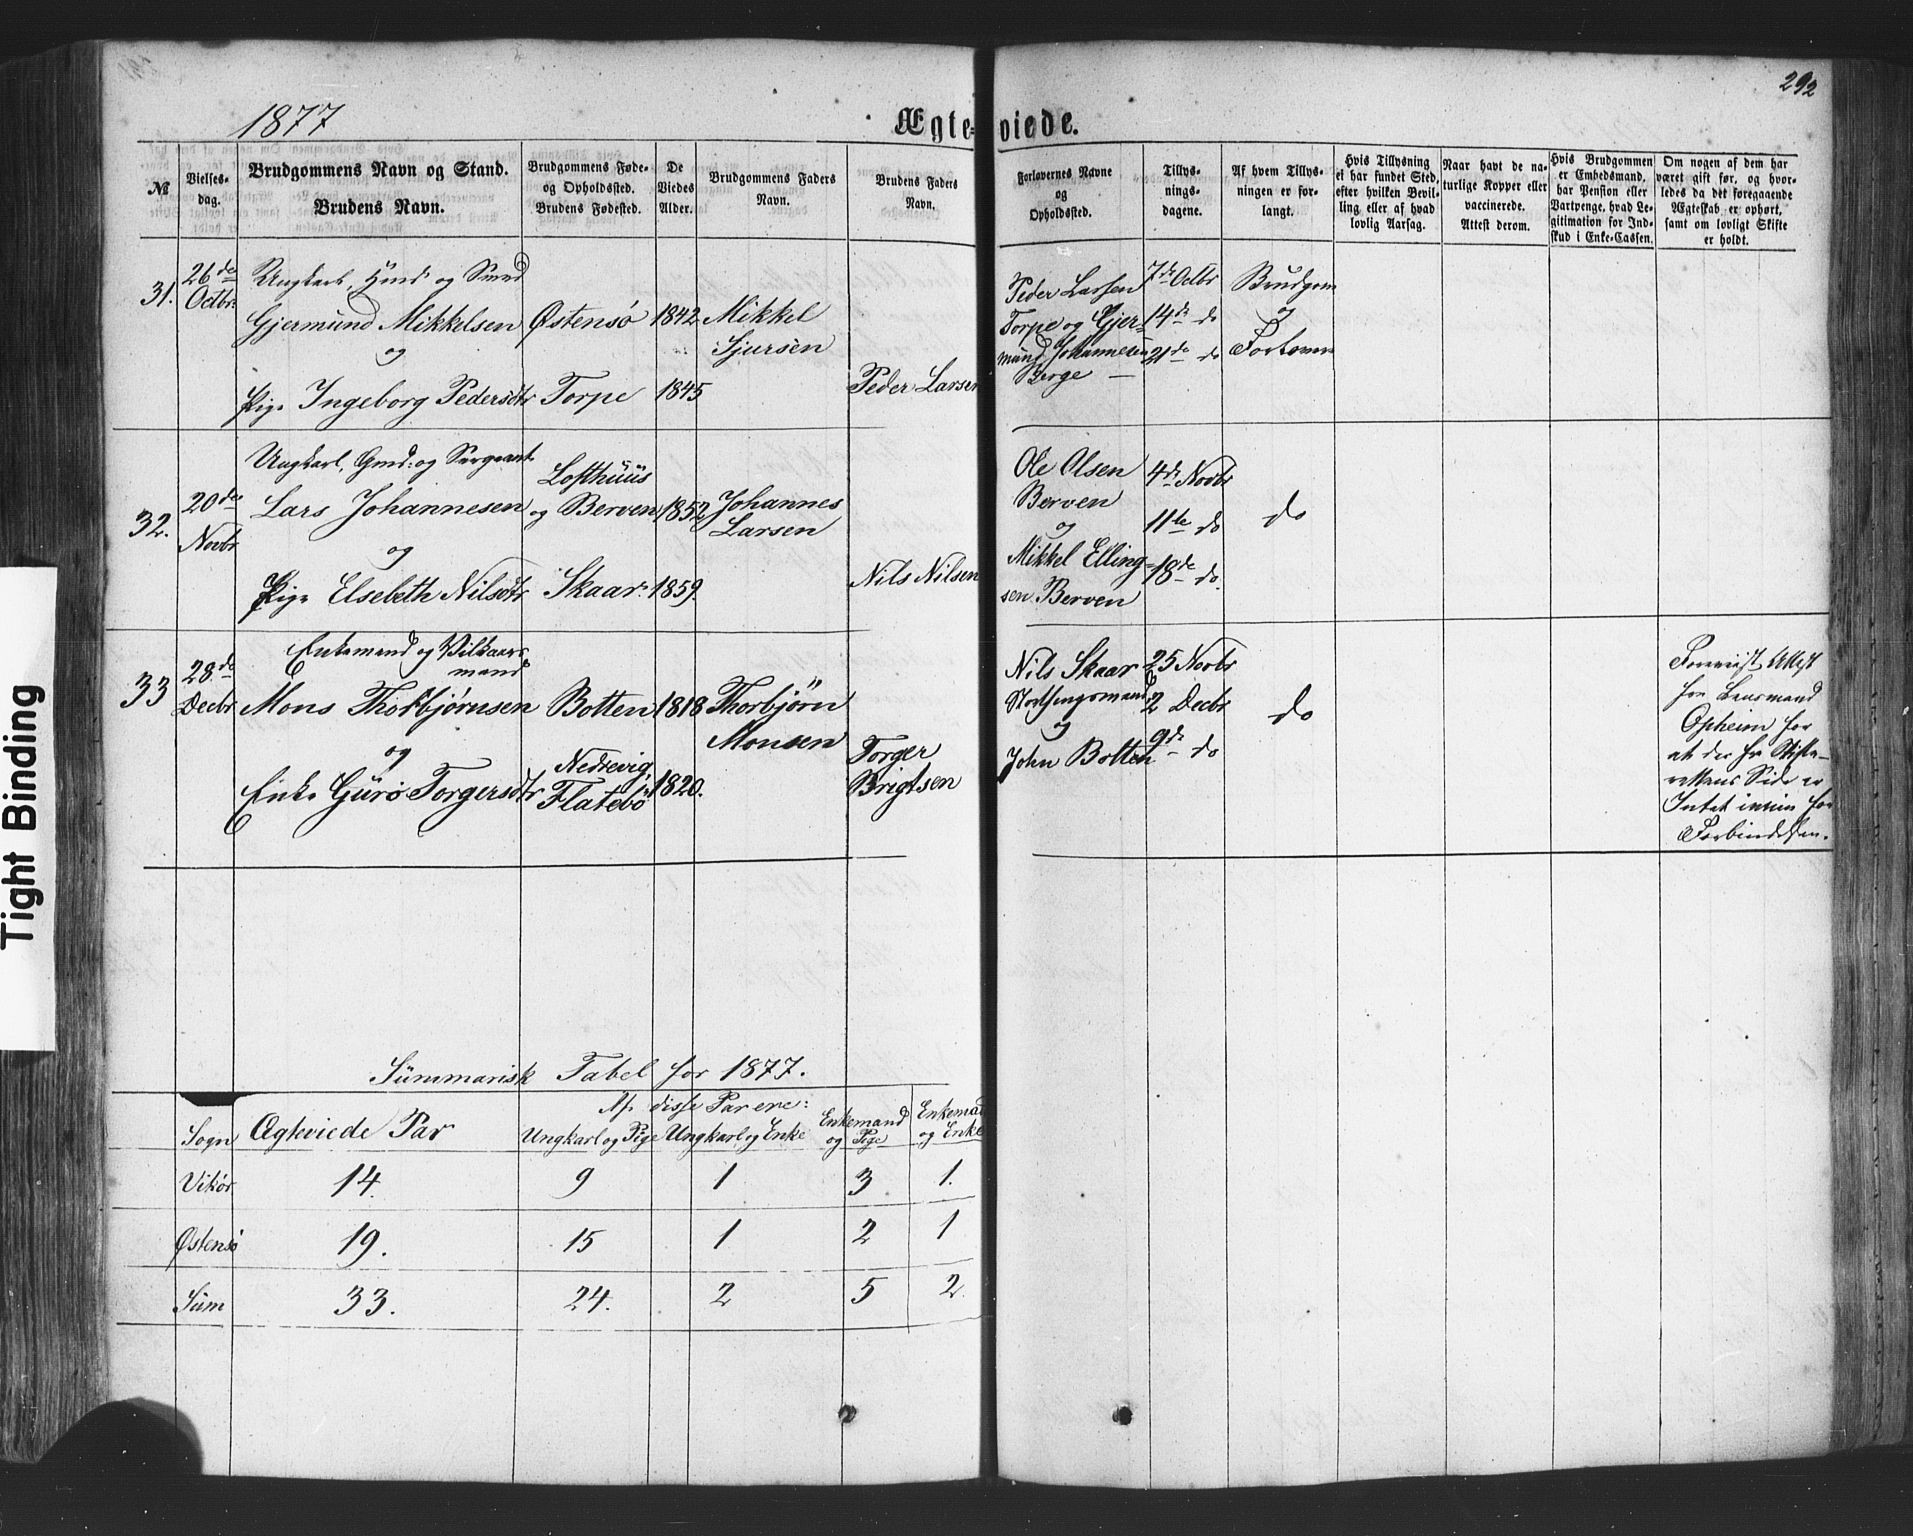 292
1877
Ægte-viede.
№
Vielses-
dag.
Brudgommens Navn og Stand.
Brudens Navn.
Brudgommens Føde-
og Opholdssted.
Brudens Fødested.
De
Viedes
Alder.
Brudgommens Faders
Navn.
Brudens Faders
Navn.
Forlovernes Navne
og
Opholdssted.
Tillys-
nings-
dagene.
Af hvem Tillys-
ningen er for-
langt.
Hvis Tillysning
ei har fundet Sted,
efter hvilken Bevil-
ling eller af hvad
lovlig Aarsag.
Naar havt de na-
turlige Kopper eller
vaccinerede.
Attest derom.
Hvis Brudgommen
er Embedsmand,
har Pension eller
Vartpenge, hvad Le-
gitimation for Ind-
skud i Enke-Cassen.
Om nogen af dem har
været gift før, og hvor-
ledes da det foregaaende
Ægteskab er ophørt,
samt om lovligt Skifte
er holdt.
31.
26de
Octbr.
Ungkarl, Huusd og Smed
Gjermund Mikkelsen
og
Pige Ingeborg Pedersdtr
Østensø
Torpe
1842
1845
Mikkel
Sjursen
Peder Larsen
Peder Larsen
Torpe og Gjer-
mund Johannesen
Berge
7de Octbr
14de do
21de do
Brudgom
og
Forlovere
32.
20de
Novbr
Ungkarl, Gmd: og Sergeant
Lars Johannesen
og
Pige Elsebeth Nilsdtr
Lofthuus
og Berven
Skaar.
1852
1859.
Johannes
Larsen
Nils Nilsen
Ole Olsen
Berven
og
Mikkel Elling-
sen Berven
4de Novbr
11te do
18de do
do
33
28de
Decbr
Enkemand og Vilkaars-
mand
Mons Thorbjørnsen
og
Enke Guro Torgersdtr
Botten
Nedrevig,
Flatebø
1818
1820.
Thorbjörn
Monsen
Torger
Brigtsen
Nils Skaar
Storthingsmand
og
John Botten
25 Novbr
2 Decbr
9de do
do
Foreviist Attest
fra Lensmand
Opheim for
at der fra Skifte-
rettens Side er
Intet iveien for
Forbindelsen.
Summarisk Tabel for 1877.
Sogn
Ægteviede Par
Af disse Par ere:
Ungkarl og Pige
Ungkarl og Enke
Enkemand
og Pige
Enkemad
og Enke
Vikør
14.
9
1
3
1.
Østensø
19.
15
1
2
1
Sum
33.
24.
2
5
2.
Tight Binding